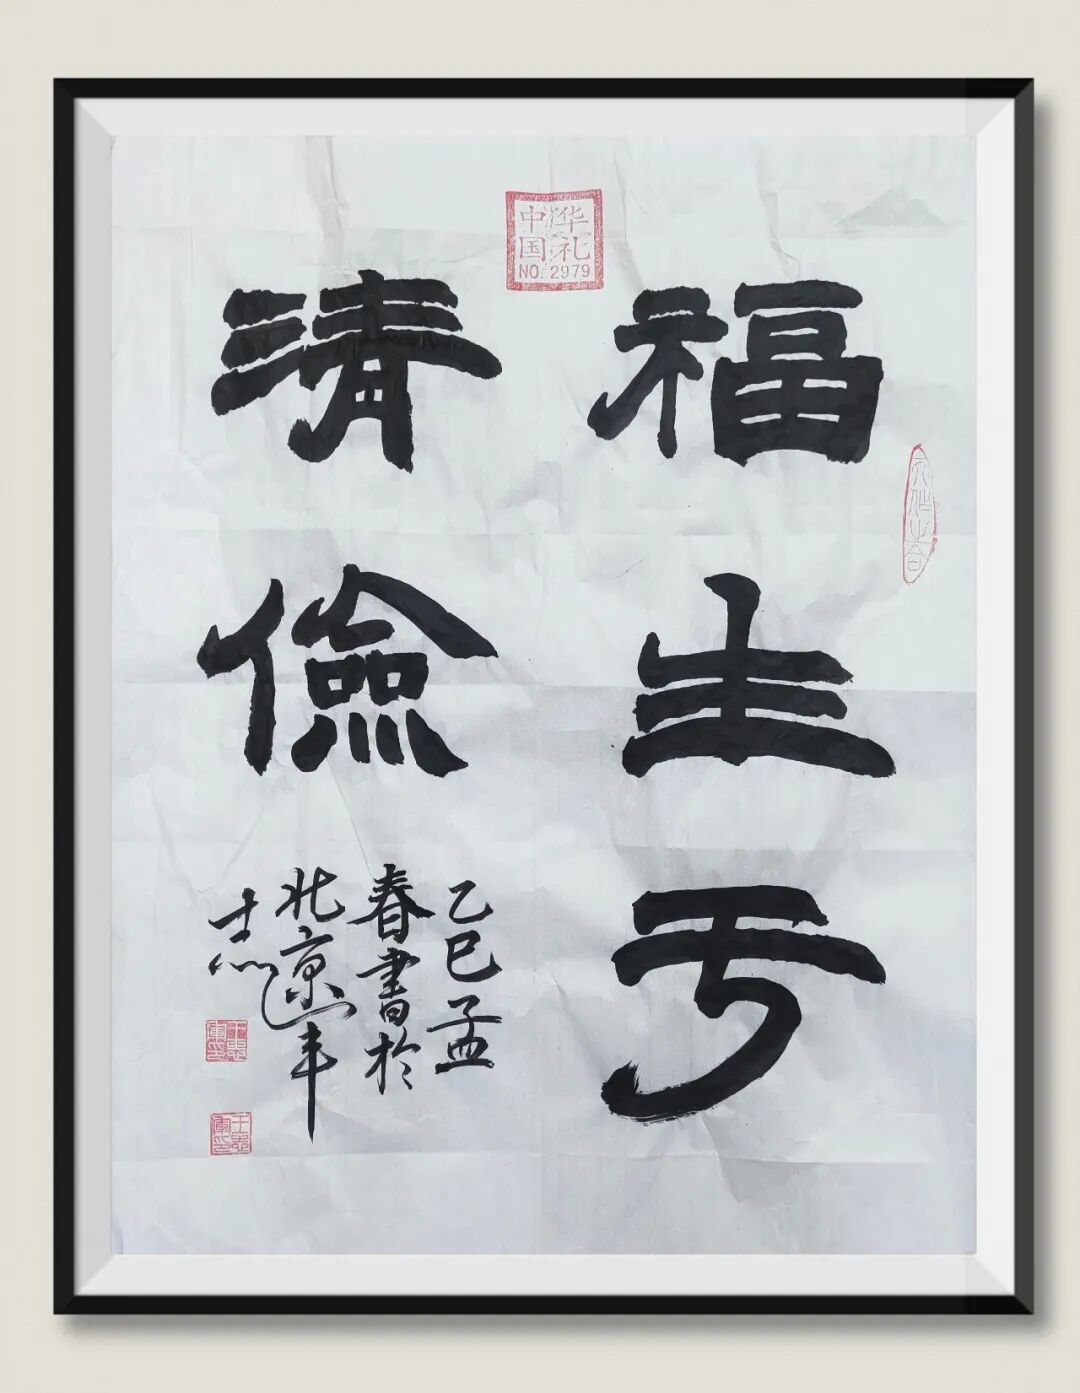 中华
国礼
NO. 2979
福生于
清儉
乙巳孟
春書於
北京
志